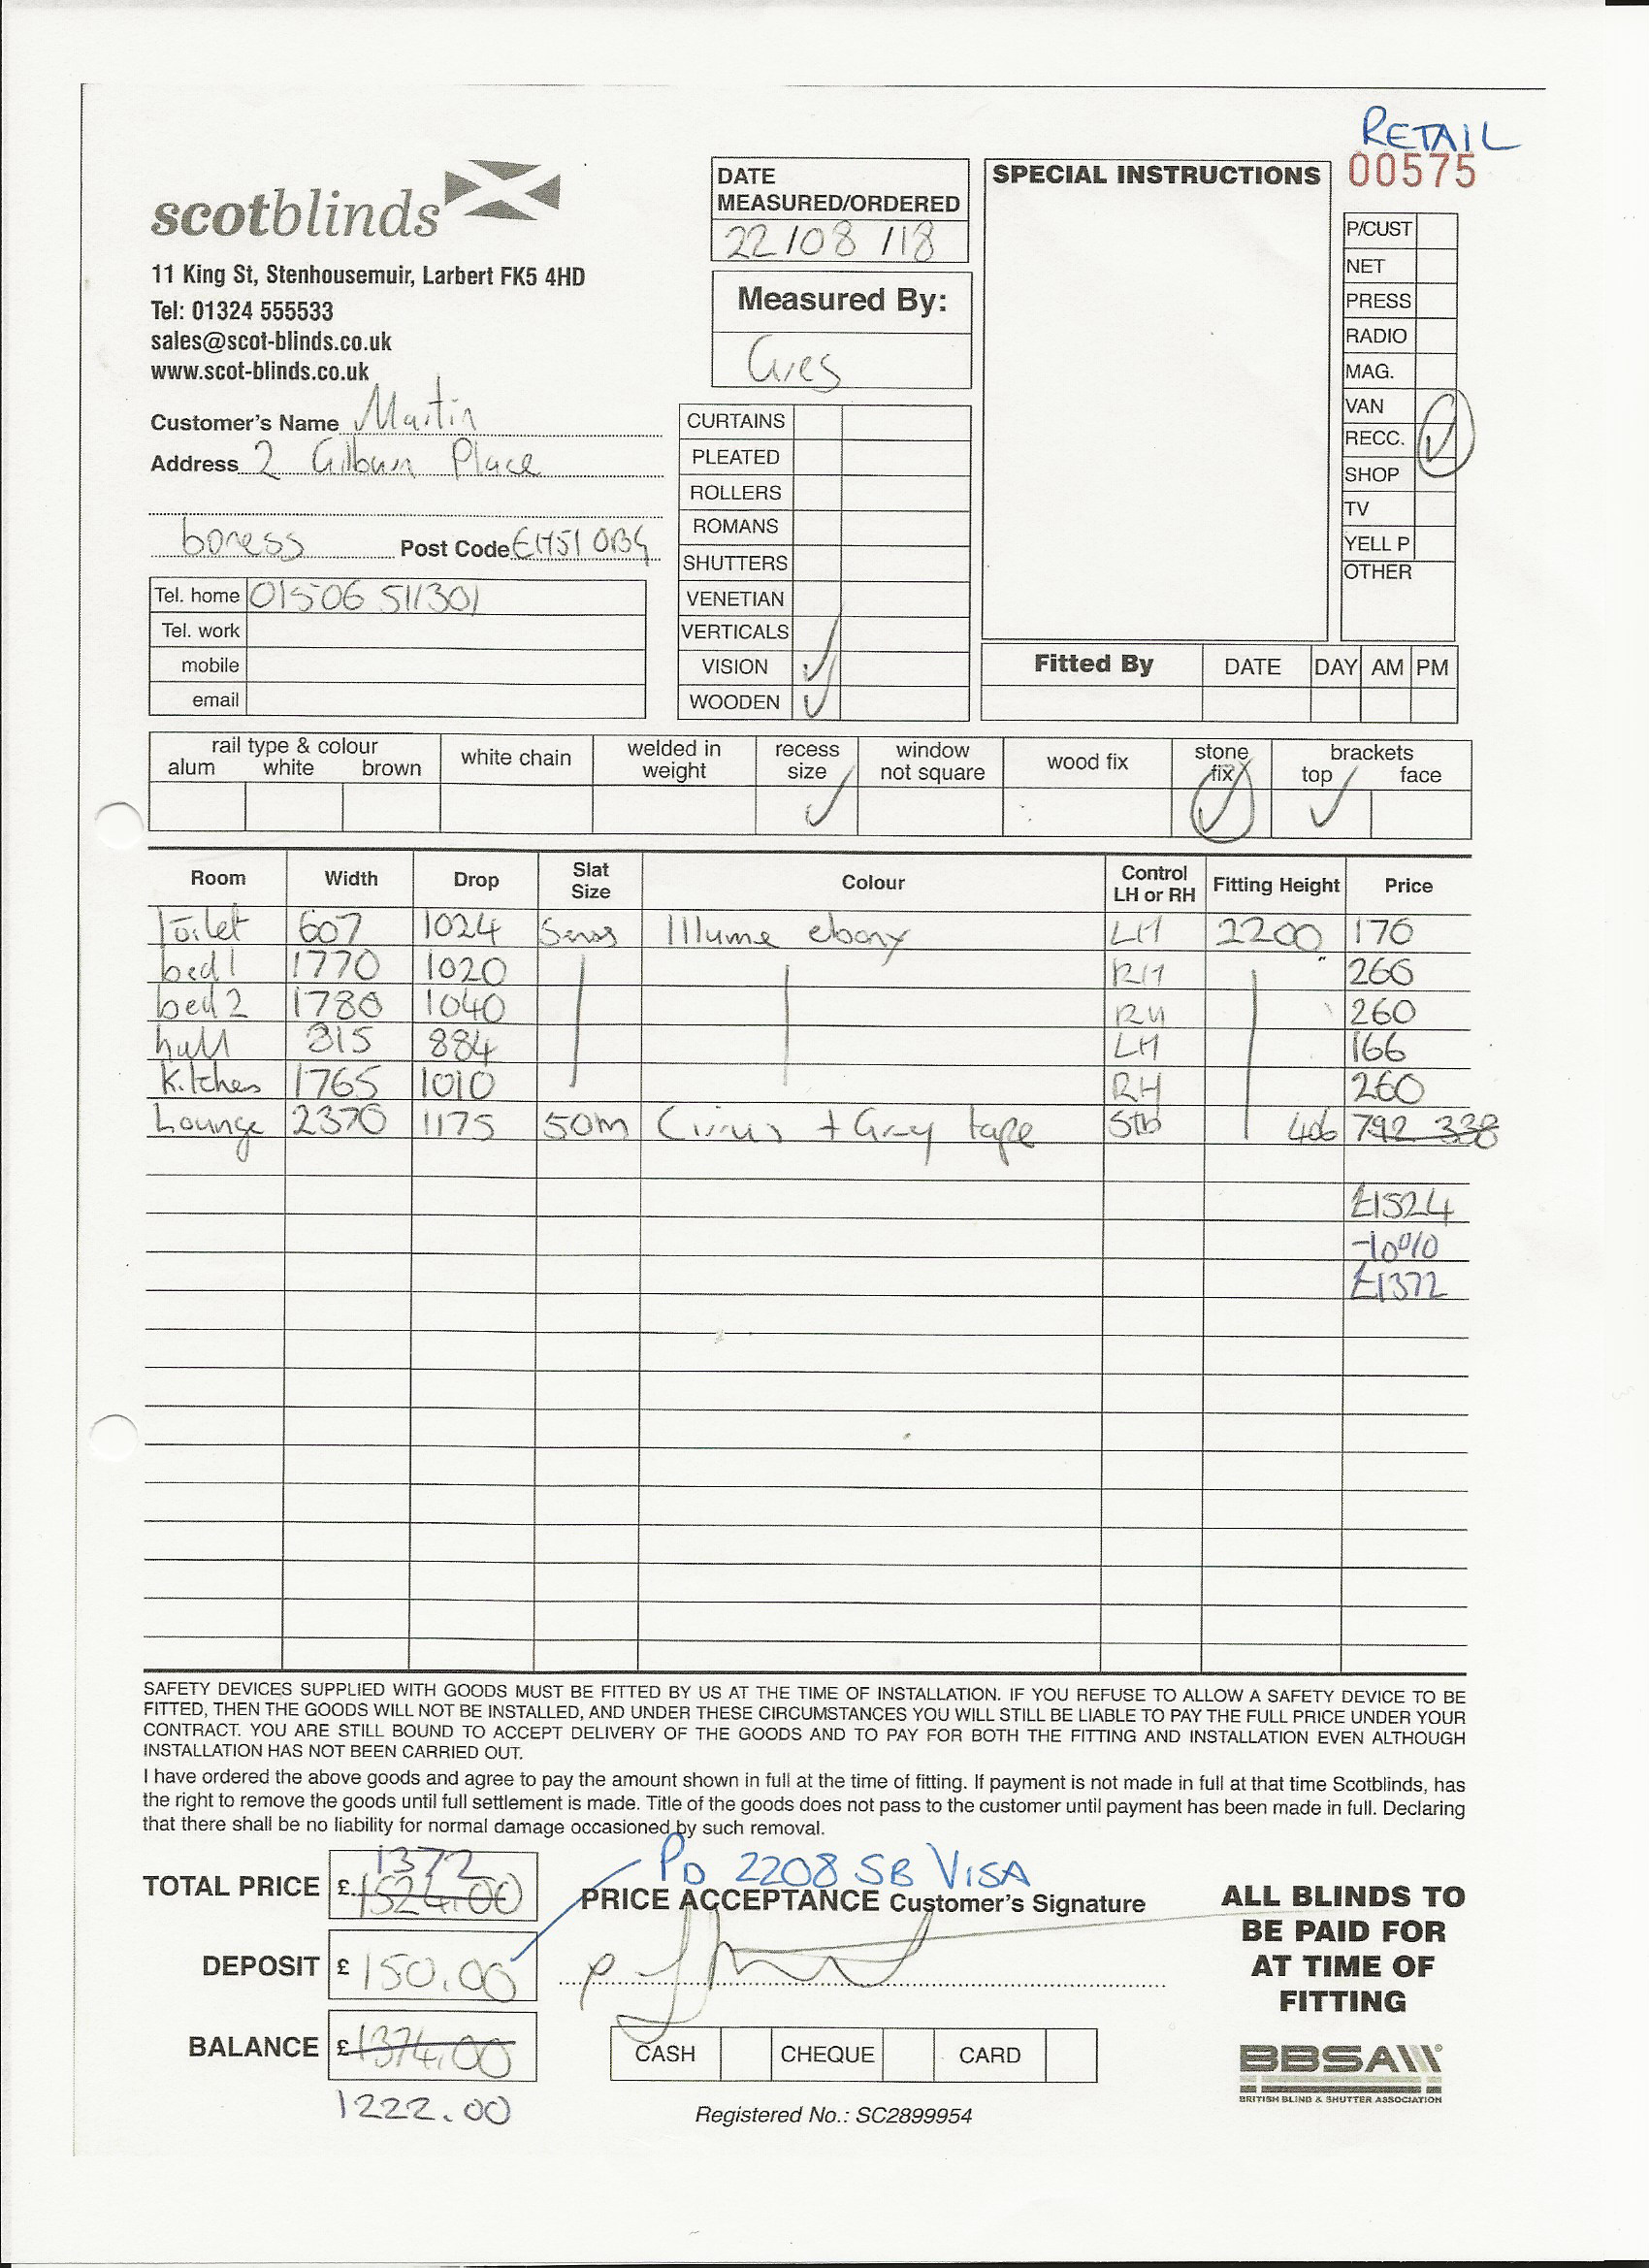 RETAIL
00575
scotblinds
11 King St, Stenhousemuir, Larbert FK5 4HD
Tel: 01324 555533
sales@scot-blinds.co.uk
www.scot-blinds.co.uk
DATE
MEASURED/ORDERED
22/08/18
Measured By:
SPECIAL INSTRUCTIONS
P/CUST
NET
PRESS
RADIO
MAG.
VAN
RECC. ✓
SHOP
TV
YELL P
OTHER
Customer's Name Martin
Address 2 Gilburn Place
boness Post Code EH51 0BG
Tel. home 01506 511301
Tel. work
mobile
email
CURTAINS
PLEATED
ROLLERS
ROMANS
SHUTTERS
VENETIAN
VERTICALS
VISION ✓
WOODEN ✓
Fitted By DATE DAY AM PM
rail type & colour
alum white brown
white chain
welded in
weight
recess
size ✓
window
not square
wood fix
stone
fix ✓
brackets
top ✓ face
Room Width Drop Slat Size Colour Control LH or RH Fitting Height Price
Toilet 607 1024 Illume ebony LH 2200 170
bed 1 1770 1020 RH " 266
bed 2 1780 1040 RH 260
hall 315 884 LH 166
Kitchen 1765 1010 RH 260
Lounge 2370 1175 50m Cirrus + Grey tape Stb 406 792 338
£1524
-10%
£1372
SAFETY DEVICES SUPPLIED WITH GOODS MUST BE FITTED BY US AT THE TIME OF INSTALLATION. IF YOU REFUSE TO ALLOW A SAFETY DEVICE TO BE
FITTED, THEN THE GOODS WILL NOT BE INSTALLED, AND UNDER THESE CIRCUMSTANCES YOU WILL STILL BE LIABLE TO PAY THE FULL PRICE UNDER YOUR
CONTRACT. YOU ARE STILL BOUND TO ACCEPT DELIVERY OF THE GOODS AND TO PAY FOR BOTH THE FITTING AND INSTALLATION EVEN ALTHOUGH
INSTALLATION HAS NOT BEEN CARRIED OUT.
I have ordered the above goods and agree to pay the amount shown in full at the time of fitting. If payment is not made in full at that time Scotblinds, has
the right to remove the goods until full settlement is made. Title of the goods does not pass to the customer until payment has been made in full. Declaring
that there shall be no liability for normal damage occasioned by such removal.
1372
TOTAL PRICE £ 1524.00
PD 2208 SB VISA
PRICE ACCEPTANCE Customer's Signature
DEPOSIT £ 150.00
BALANCE £ 1374.00
1222.00
CASH CHEQUE CARD
Registered No.: SC2899954
ALL BLINDS TO
BE PAID FOR
AT TIME OF
FITTING
BBSA
BRITISH BLIND & SHUTTER ASSOCIATION